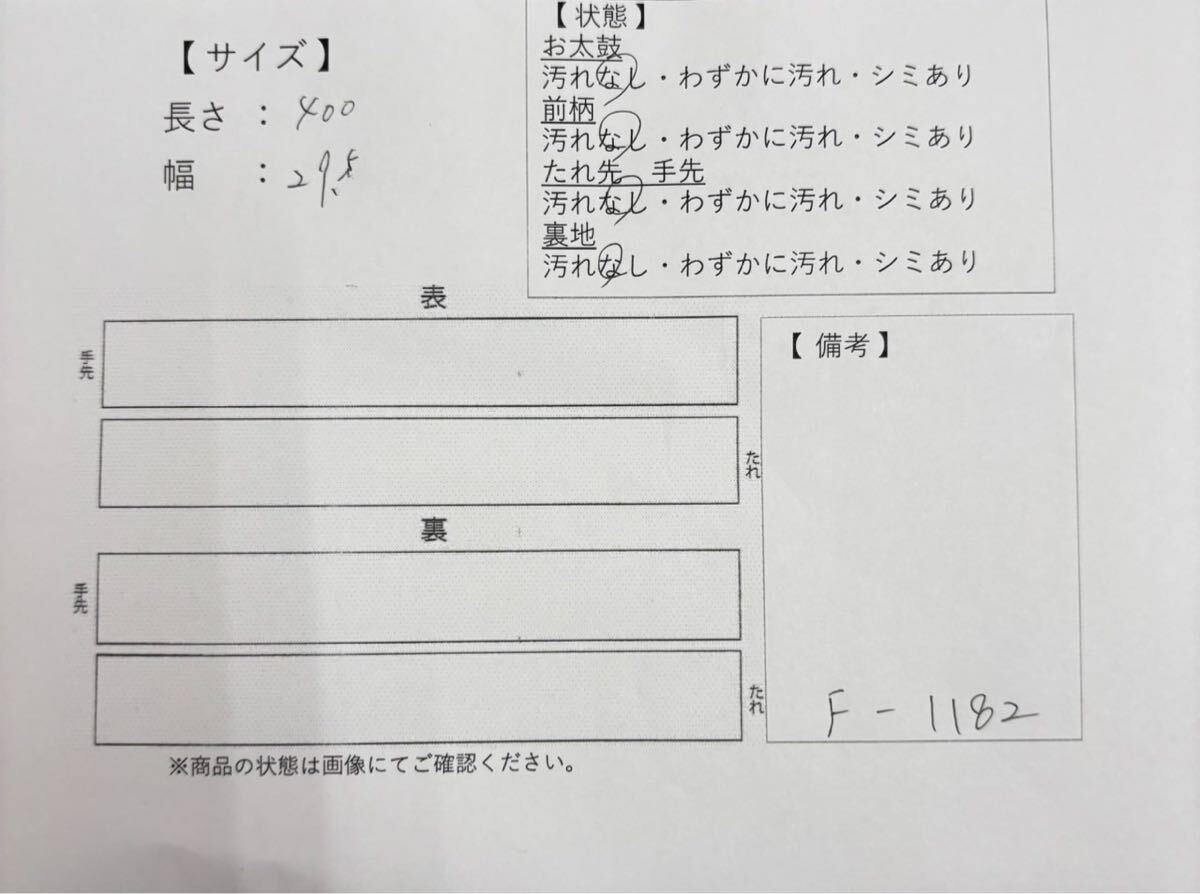 【 サイズ 】
長さ : 400
幅 : 29.5
【 状態 】
お太鼓
汚れなし・わずかに汚れ・シミあり
前柄
汚れなし・わずかに汚れ・シミあり
たれ先 手先
汚れなし・わずかに汚れ・シミあり
裏地
汚れなし・わずかに汚れ・シミあり
表
手先
たれ
裏
手先
たれ
【 備考 】
F - 1182
※商品の状態は画像にてご確認ください。